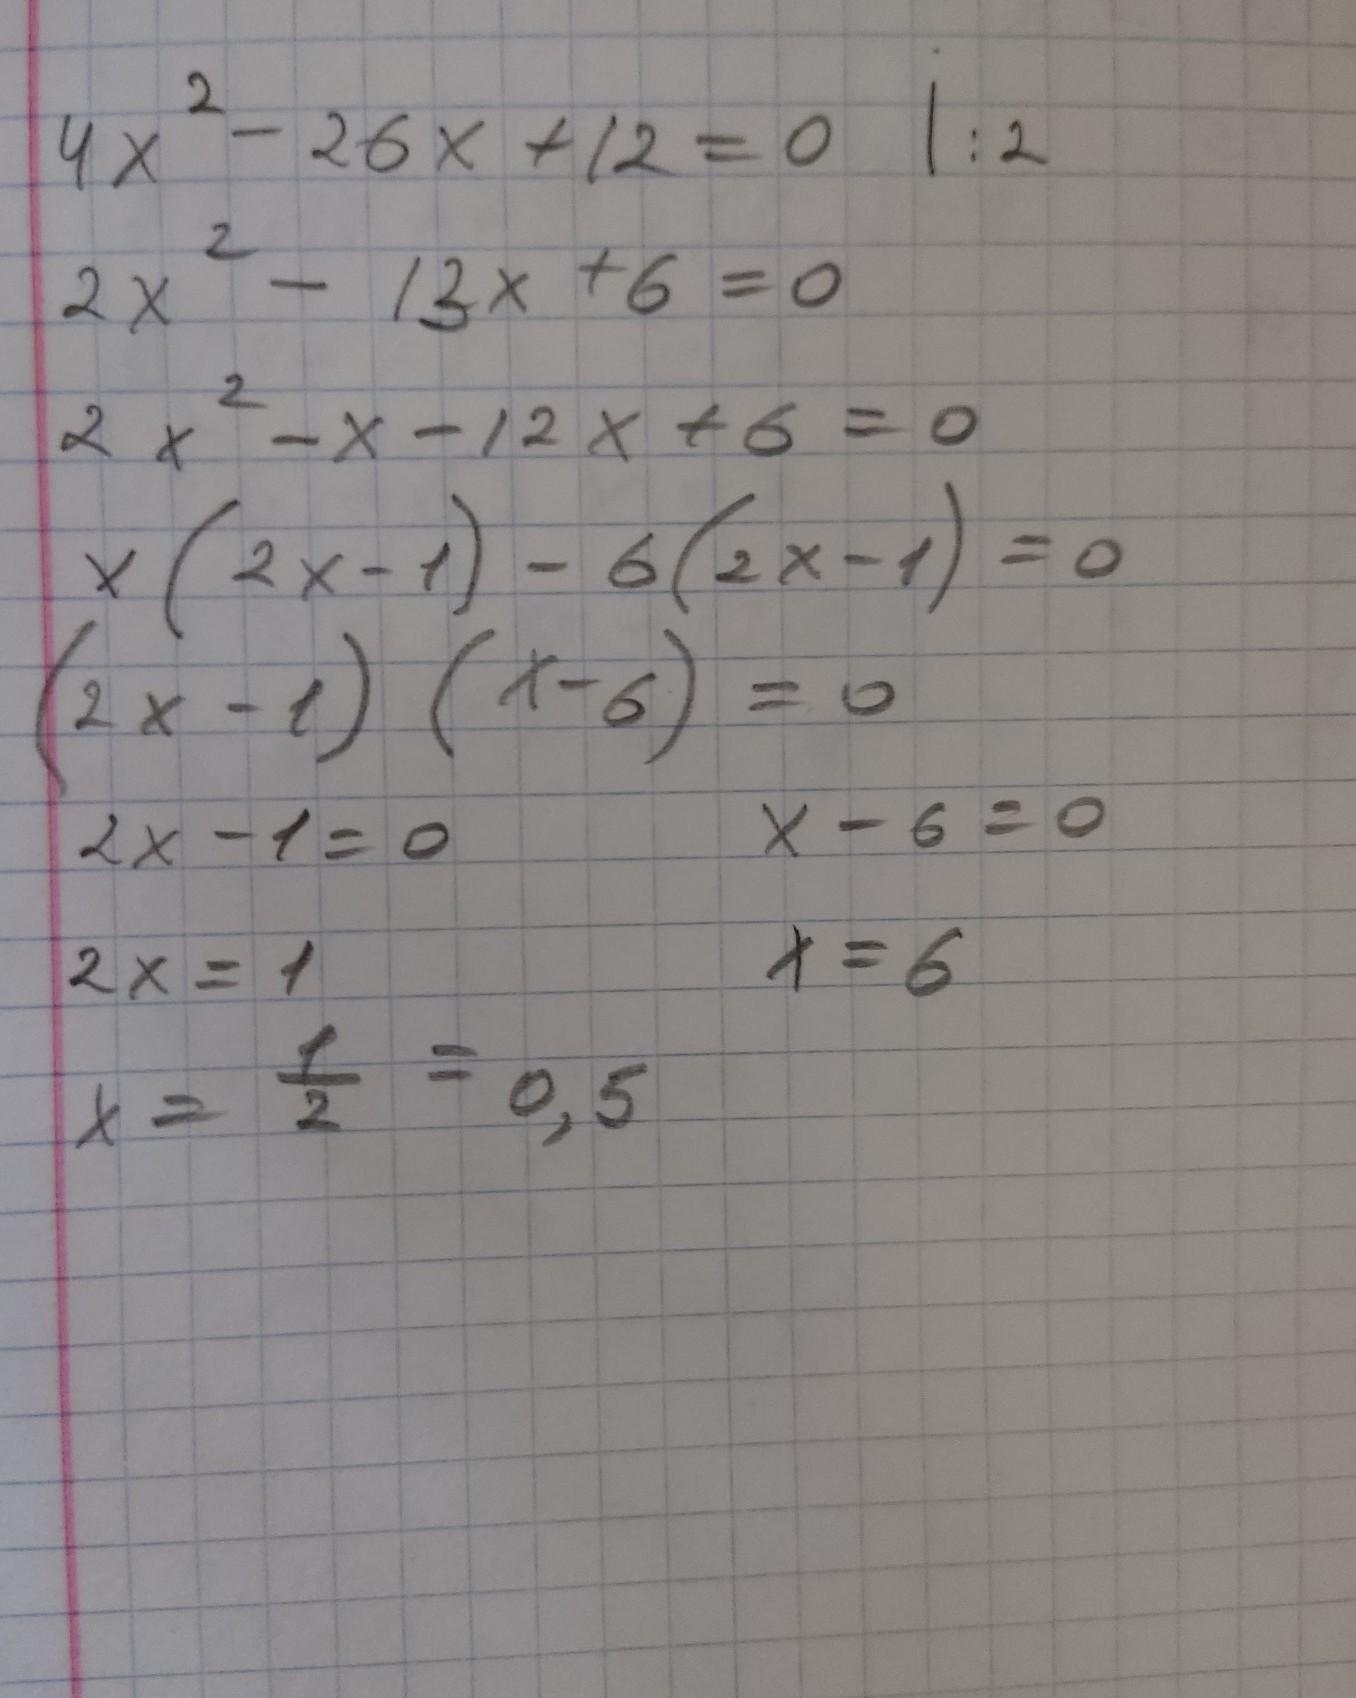 4x² - 26x + 12 = 0 | : 2
2x² - 13x + 6 = 0
2x² - x - 12x + 6 = 0
x(2x - 1) - 6(2x - 1) = 0
(2x - 1) (x - 6) = 0
2x - 1 = 0 x - 6 = 0
2x = 1 x = 6
x = 1/2 = 0,5